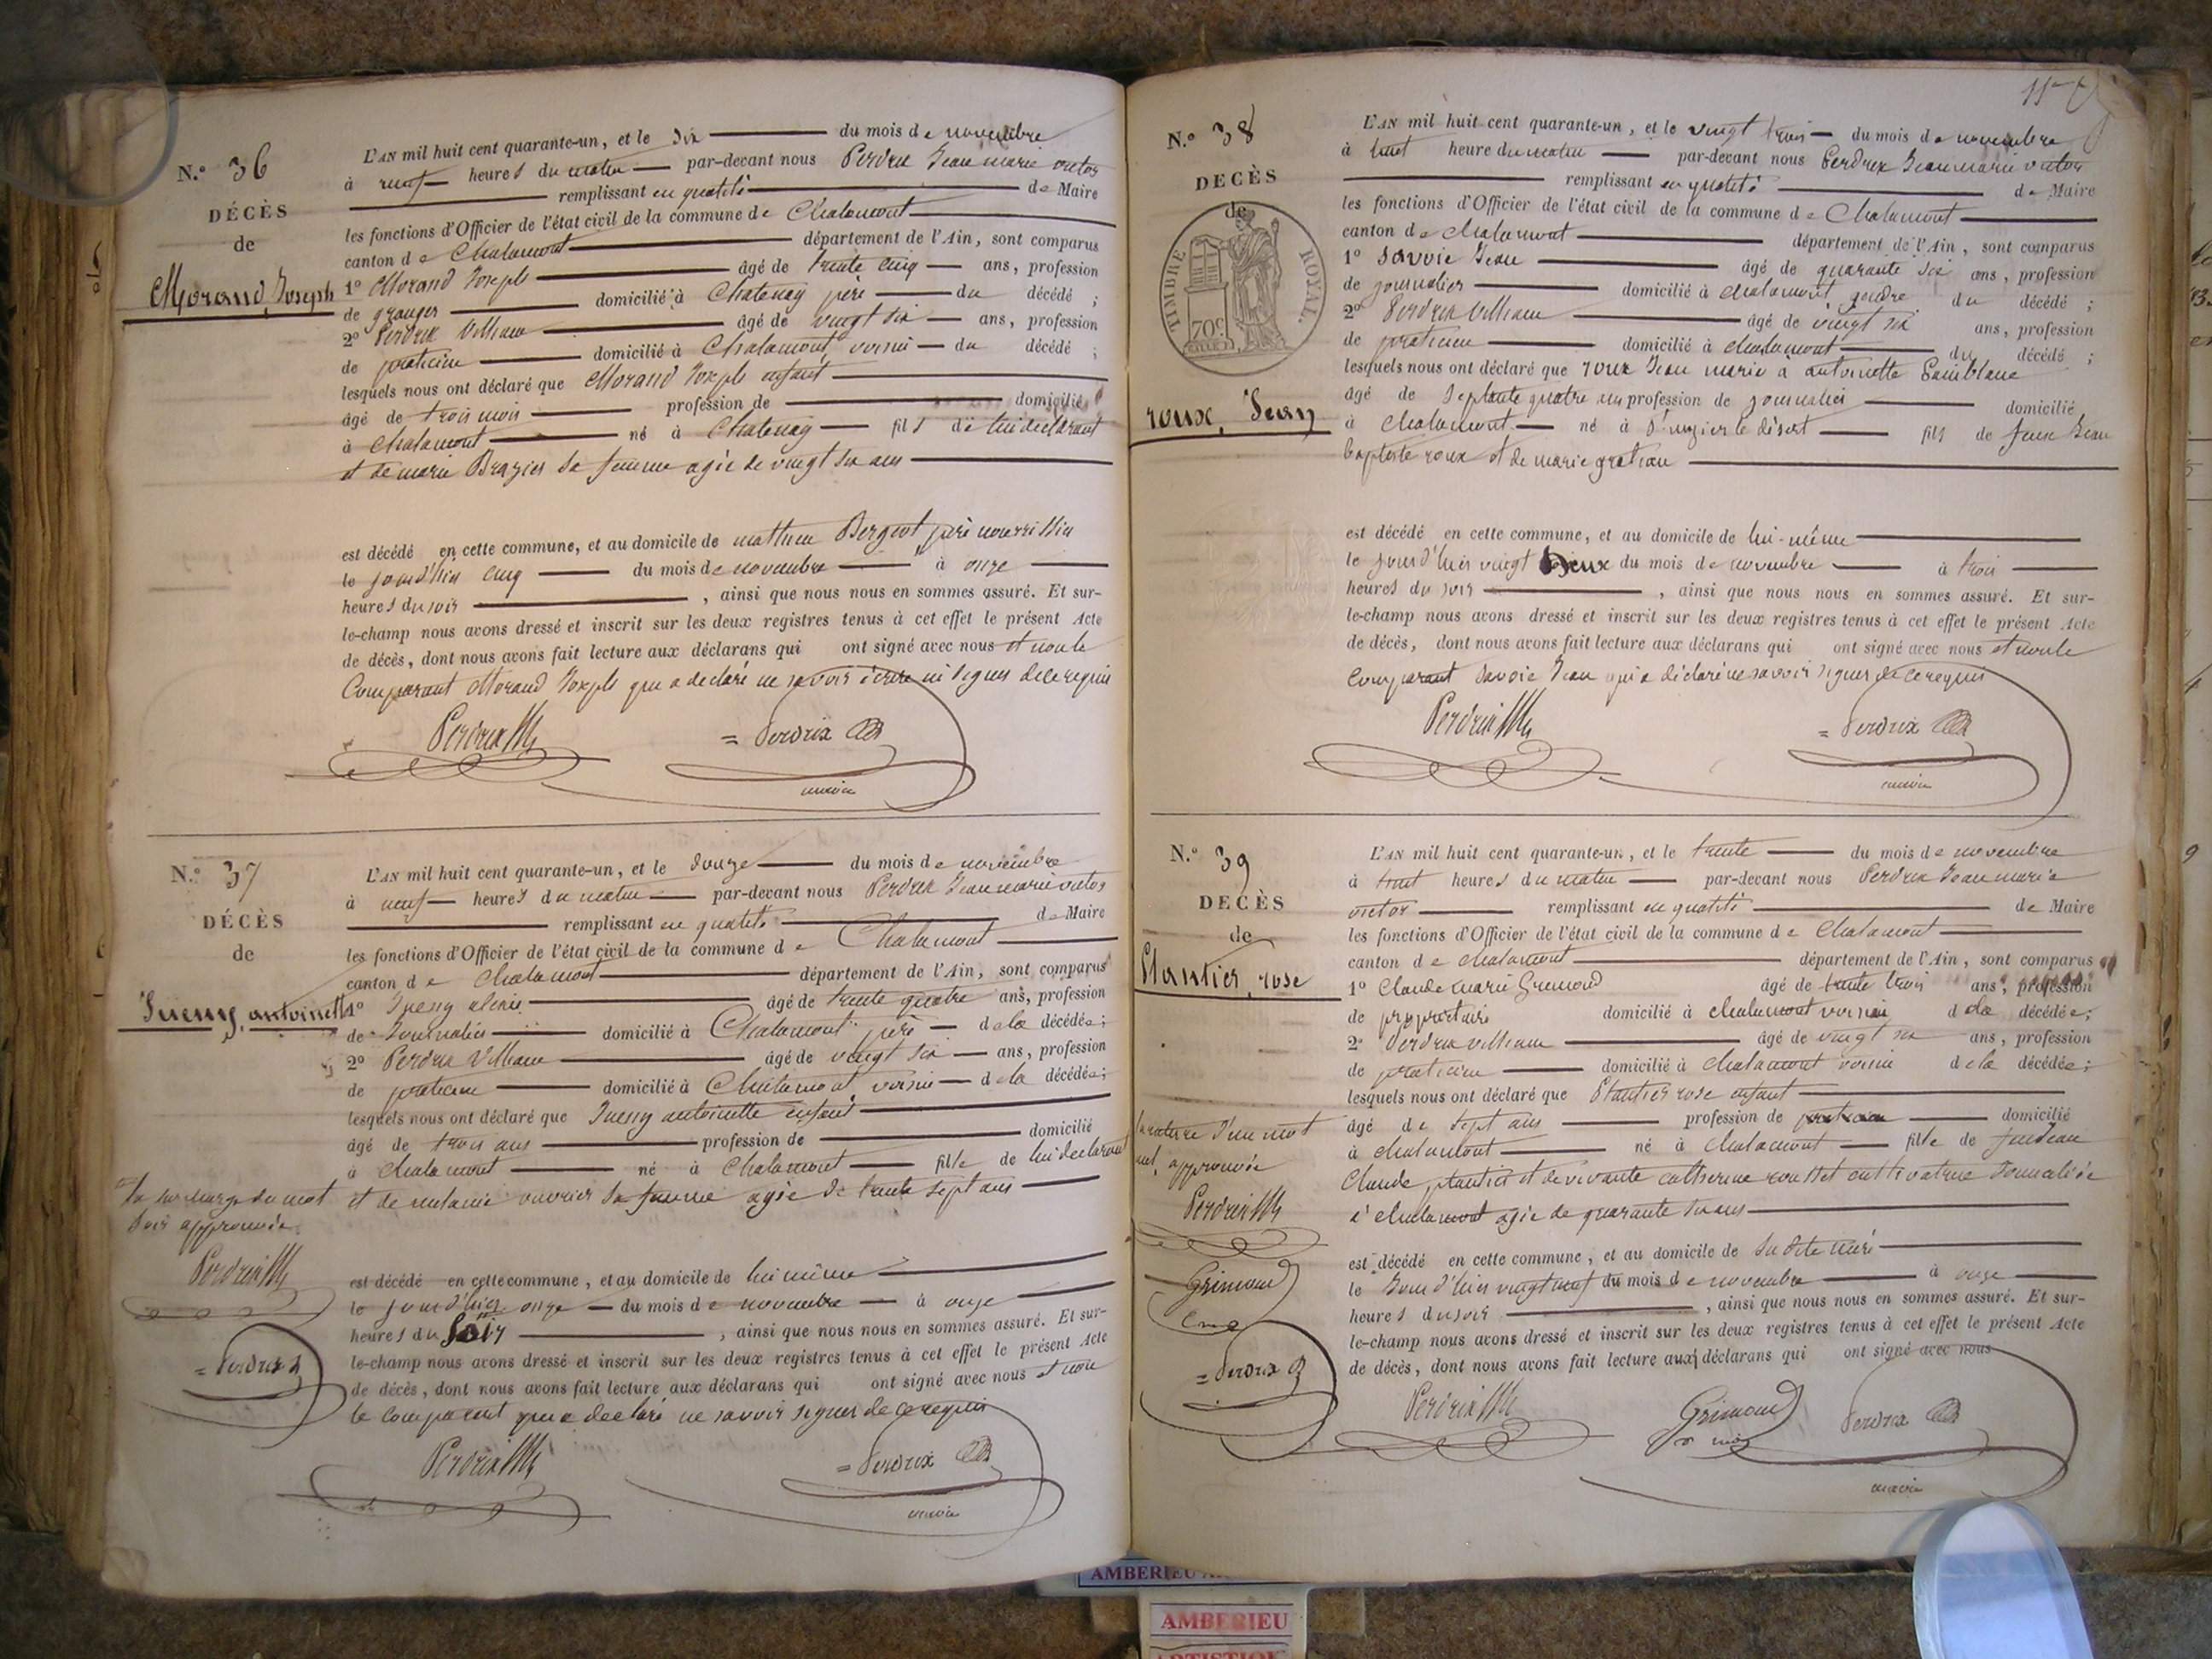 N.° 36
DÉCÈS
de
Morand, Joseph
L'AN mil huit cent quarante-un, et le six du mois de novembre
à neuf heures du matin par-devant nous Perdrix Jean marie victor
remplissant en qualité de Maire
les fonctions d'Officier de l'état civil de la commune de Chalamont
canton de Chalamont département de l'Ain, sont comparus
1° Morand Joseph âgé de trente cinq ans, profession
de granger domicilié à Chatenay père du décédé ;
2° Perdrix William âgé de vingt six ans, profession
de praticien domicilié à Chalamont, voisin du décédé ;
lesquels nous ont déclaré que Morand Joseph enfant
âgé de trois mois profession de domicilié
à Chalamont né à Chatenay fils de lui déclarant
et de marie Brazier sa femme agée de vingt six ans
est décédé en cette commune, et au domicile de mathieu Bergiot père nourrissin
le jourd'hier cinq du mois de novembre à onze
heures du soir , ainsi que nous nous en sommes assuré. Et sur-
le-champ nous avons dressé et inscrit sur les deux registres tenus à cet effet le présent Acte
de décès, dont nous avons fait lecture aux déclarans qui ont signé avec nous et non le
Comparant Morand Joseph qui a déclaré ne savoir écrire ni signer de ce requis
Perdrix
= Perdrix
maire
N.° 37
DÉCÈS
de
antoinette
L'AN mil huit cent quarante-un, et le douze du mois de novembre
à neuf heures du matin par-devant nous Perdrix Jean marie victor
remplissant en qualité de Maire
les fonctions d'Officier de l'état civil de la commune de Chalamont
canton de Chalamont département de l'Ain, sont comparus
1° alexis âgé de trente quatre ans, profession
de Journalier domicilié à Chalamont père de la décédée ;
2° Perdrix William âgé de vingt six ans, profession
de praticien domicilié à Chalamont voisin de la décédée ;
lesquels nous ont déclaré que antoinette enfant
âgé de trois ans profession de domicilié
à Chalamont né à Chalamont fille de lui déclarant
et de melanie ouvrier sa femme agée de trente sept ans
la surcharge du mot
soir approuvée
Perdrix
= Perdrix
est décédé en cette commune, et au domicile de lui même
le jourd'hier onze du mois de novembre à onze
heures du soir , ainsi que nous nous en sommes assuré. Et sur-
le-champ nous avons dressé et inscrit sur les deux registres tenus à cet effet le présent Acte
de décès, dont nous avons fait lecture aux déclarans qui ont signé avec nous et non
le comparant qui a déclaré ne savoir signer de ce requis
Perdrix
= Perdrix
maire
N.° 38
DECÈS
de
TIMBRE ROYAL.
70c
roux, Jean
L'AN mil huit cent quarante-un, et le vingt trois du mois de novembre
à huit heure du matin par-devant nous Perdrix Jean marie victor
remplissant en qualité de Maire
les fonctions d'Officier de l'état civil de la commune de Chalamont
canton de chalamont département de l'Ain, sont comparus
1° Savoie Jean âgé de quarante six ans, profession
de journalier domicilié à chalamont gendre du décédé ;
2° Perdrix William âgé de vingt six ans, profession
de praticien domicilié à chalamont du décédé ;
lesquels nous ont déclaré que roux Jean marié a antoinette
âgé de septante quatre ans profession de journalier domicilié
à chalamont né à St nizier le désert fils de feux Jean
baptiste roux et de marie
est décédé en cette commune, et au domicile de lui-même
le jourd'hier vingt Deux du mois de novembre à trois
heures du soir , ainsi que nous nous en sommes assuré. Et sur-
le-champ nous avons dressé et inscrit sur les deux registres tenus à cet effet le présent Acte
de décès, dont nous avons fait lecture aux déclarans qui ont signé avec nous et non le
comparant Savoie Jean qui a déclaré ne savoir signer de ce requis
Perdrix
= Perdrix
maire
N.° 39
DECÈS
de
Plantier, rose
L'AN mil huit cent quarante-un, et le trente du mois de novembre
à huit heures du matin par-devant nous Perdrix Jean marie
victor remplissant en qualité de Maire
les fonctions d'Officier de l'état civil de la commune de Chalamont
canton de chalamont département de l'Ain, sont comparus
1° Claude marie Grimoud âgé de trente trois ans, profession
de propriétaire domicilié à chalamont voisin de la décédée ;
2° Perdrix William âgé de vingt six ans, profession
de praticien domicilié à chalamont voisin de la décédée ;
lesquels nous ont déclaré que Plantier rose enfant
âgé de sept ans profession de domicilié
à chalamont né à chalamont fille de
Claude plantier et de vivante catherine rousset cultivatrice domiciliée
à chalamont agée de quarante six ans
la rature d'un mot
nul, approuvée
Perdrix
Grimoud
= Perdrix
est décédé en cette commune, et au domicile de sa dite mère
le jourd'hier vingt neuf du mois de novembre à onze
heures du soir , ainsi que nous nous en sommes assuré. Et sur-
le-champ nous avons dressé et inscrit sur les deux registres tenus à cet effet le présent Acte
de décès, dont nous avons fait lecture aux déclarans qui ont signé avec nous
Perdrix
Grimoud
Perdrix
maire
AMBERIEU
AMBERIEU